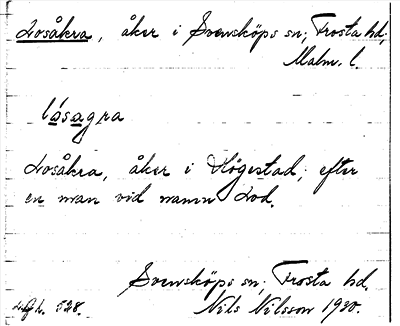 Losåkra, åker i Svensköps sn; Frosta hd,
Malm. l.
lósagra
Losåkra, åker i Högestad; efter
en man vid namn Lod.
Svensköps sn; Frosta hd.
528. Nils Nilsson 1930.